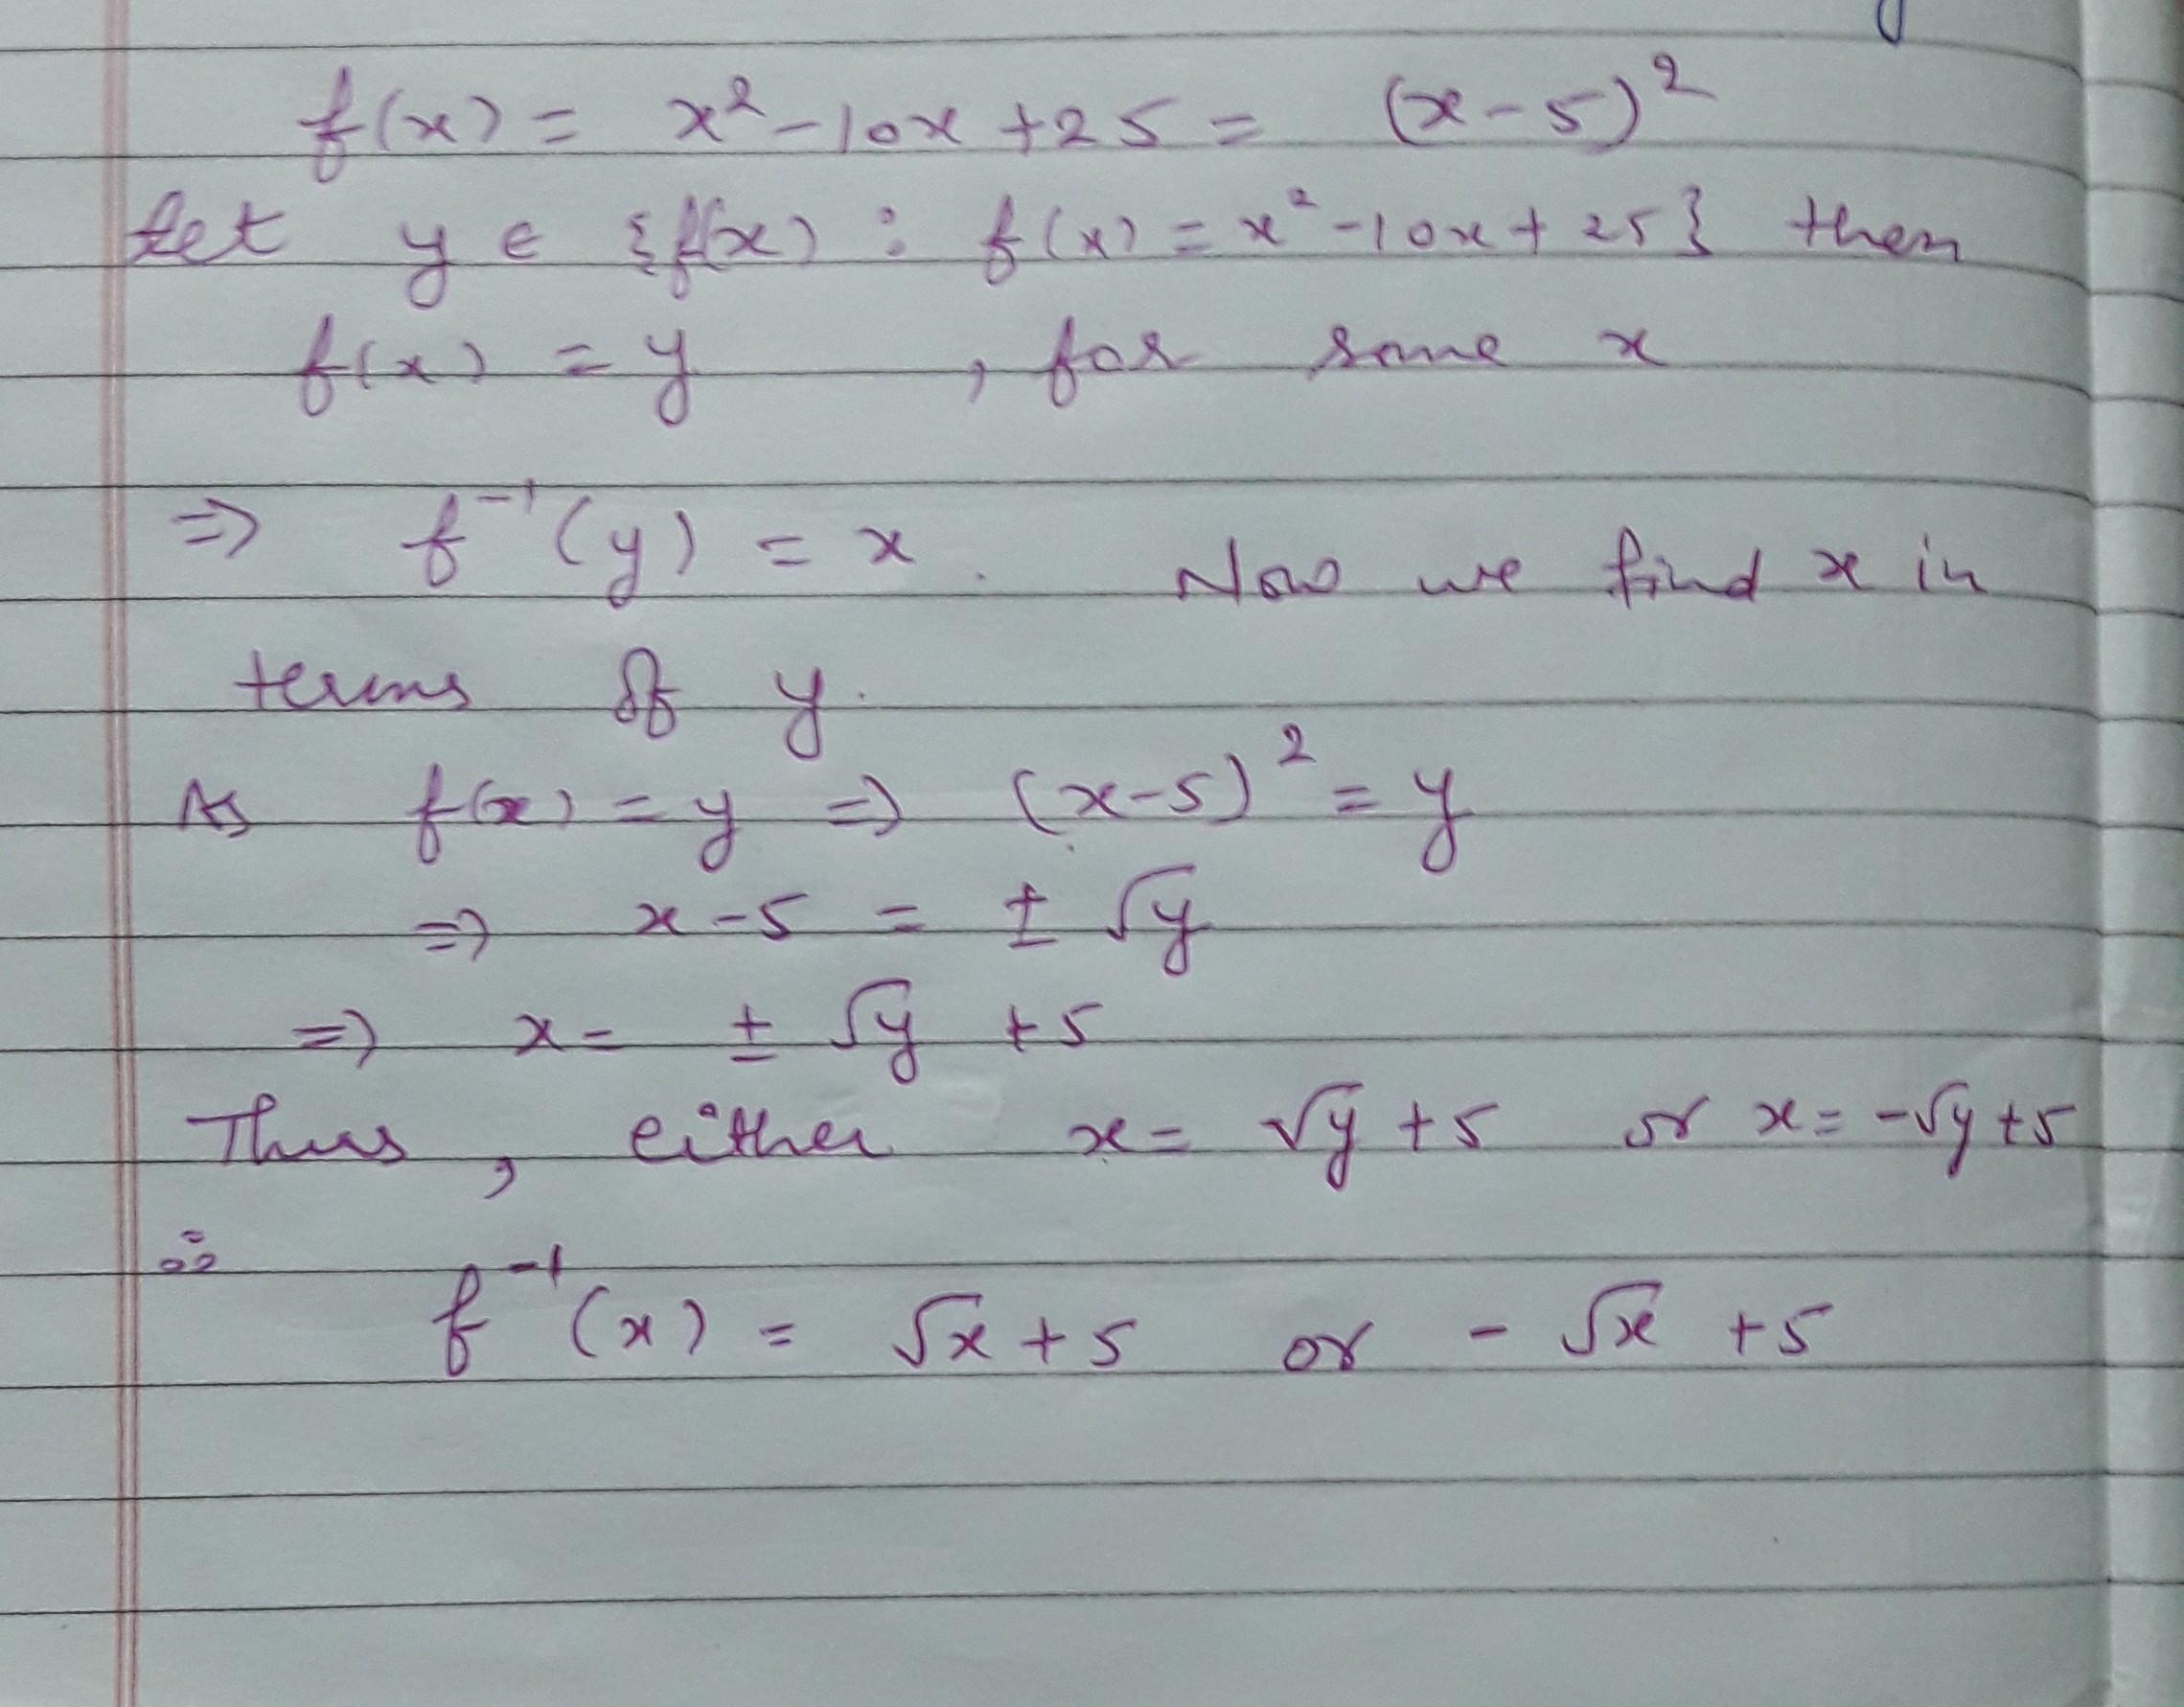 f(x) = x² - 10x + 25 = (x - 5)²
let y ∈ {f(x) : f(x) = x² - 10x + 25} then
f(x) = y , for some x
⇒ f⁻¹(y) = x. Now we find x in
terms of y.
As f(x) = y ⇒ (x-5)² = y
⇒ x - 5 = ± √y
⇒ x = ± √y + 5
Thus, either x = √y + 5 or x = -√y + 5
∴ f⁻¹(x) = √x + 5 or - √x + 5